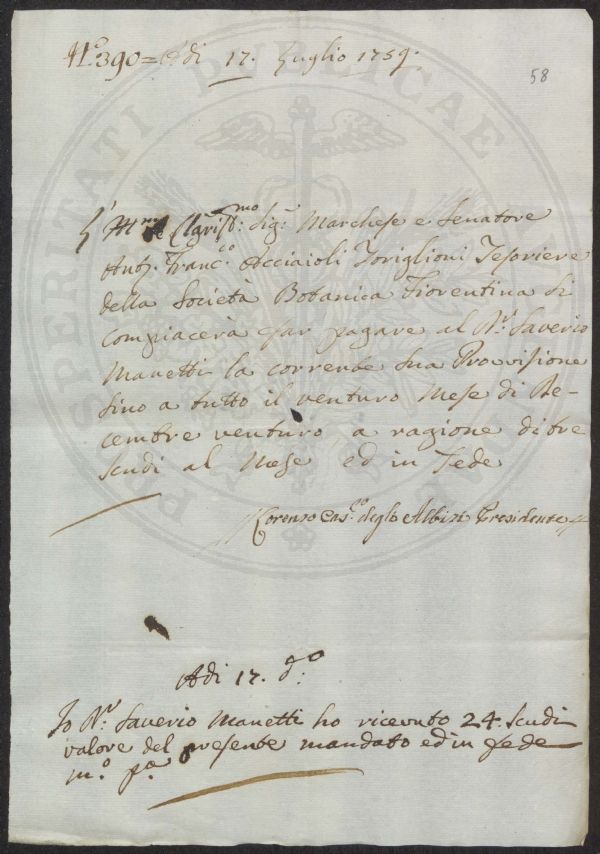 N.o 390 = Adi 17. Luglio 1759.
58
L' Ill.mo e Clariss.mo Sig.r Marchese e Senatore
Ant.o Franc.o Acciaioli Toriglioni Tesoriere
della Società Botanica Fiorentina Si
Compiacerà far pagare al D.r Saverio
Manetti la corrente Sua Provvisione
Sino a tutto il venturo Mese di De-
cembre venturo a ragione di tre
Scudi al Mese ed in Fede
Lorenzo Gas.o degli Albizi Presidente
Adi 17. d.o
Io D.r Saverio Manetti ho ricevuto 24. Scudi
valore del presente mandato ed in fede
m.o p.a
PROSPERITATI PUBLICAE